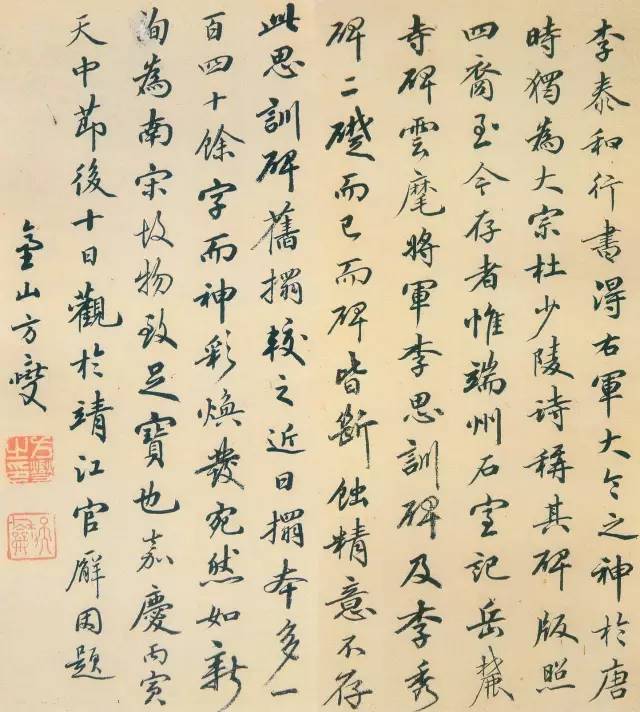 李泰和行書得右軍大令之神於唐
時獨為大宗杜少陵诗稱其碑版照
四裔至今存者惟端州石室記岳麓
寺碑雲麾將軍李思訓碑及李秀
碑二礎而已而碑皆斷蝕精意不存
此思訓碑舊搨較之近日搨本多一
百四十餘字而神彩煥發宛然如新
洵為南宋故物致足寶也嘉慶丙寅
天中節後十日觀於靖江官廨因題
山方燮